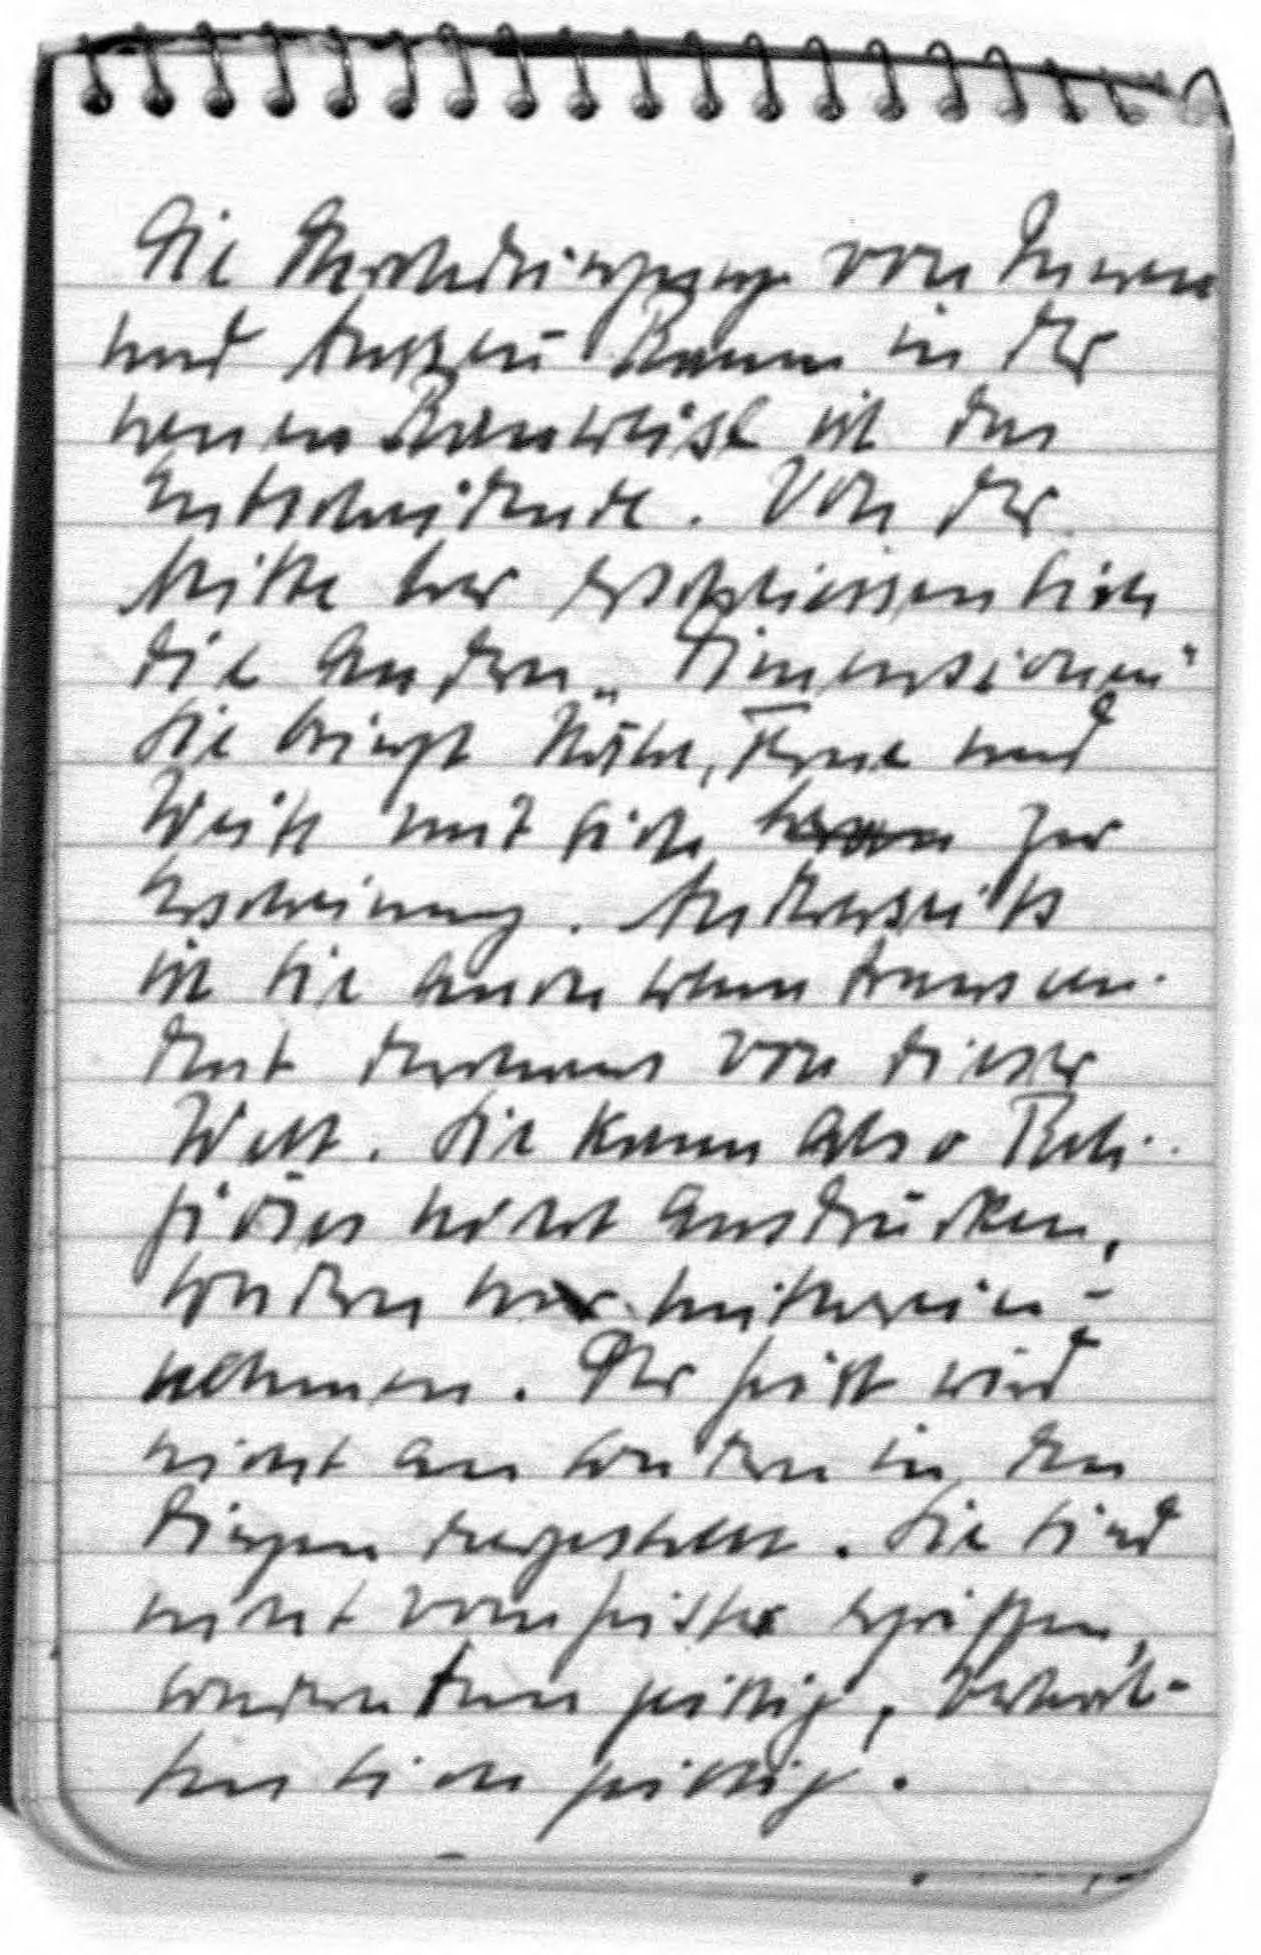 Die Durchdringung von Innen
und Außen-Raum in der
neuen Bauweise ist das
Entscheidende. Von der
Mitte her erschliessen sich
die andern „Dimensionen"
Sie bringt Nähe, Ferne und
Weite mit sich zur
Erscheinung. Anderseits
ist sie auch schon transzen-
dent durchaus von dieser
Welt. Sie kann also Reli-
giöses nicht ausdrücken,
sondern nur mithinein-
nehmen. Der Geist wird
nicht an sondern in den
Dingen dargestellt. Sie sind
nicht vom Geiste ergriffen,
sondern geistig,
sich geistig.